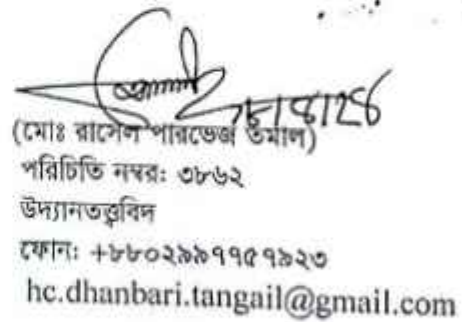 (মোঃ রাসেল পারভেজ তমাল)
পরিচিতি নম্বর: ৩৮৬২
উদ্যানতত্ত্ববিদ
ফোন: +৮৮০২৯৯৭৭৫৭৯২৩
hc.dhanbari.tangail@gmail.com